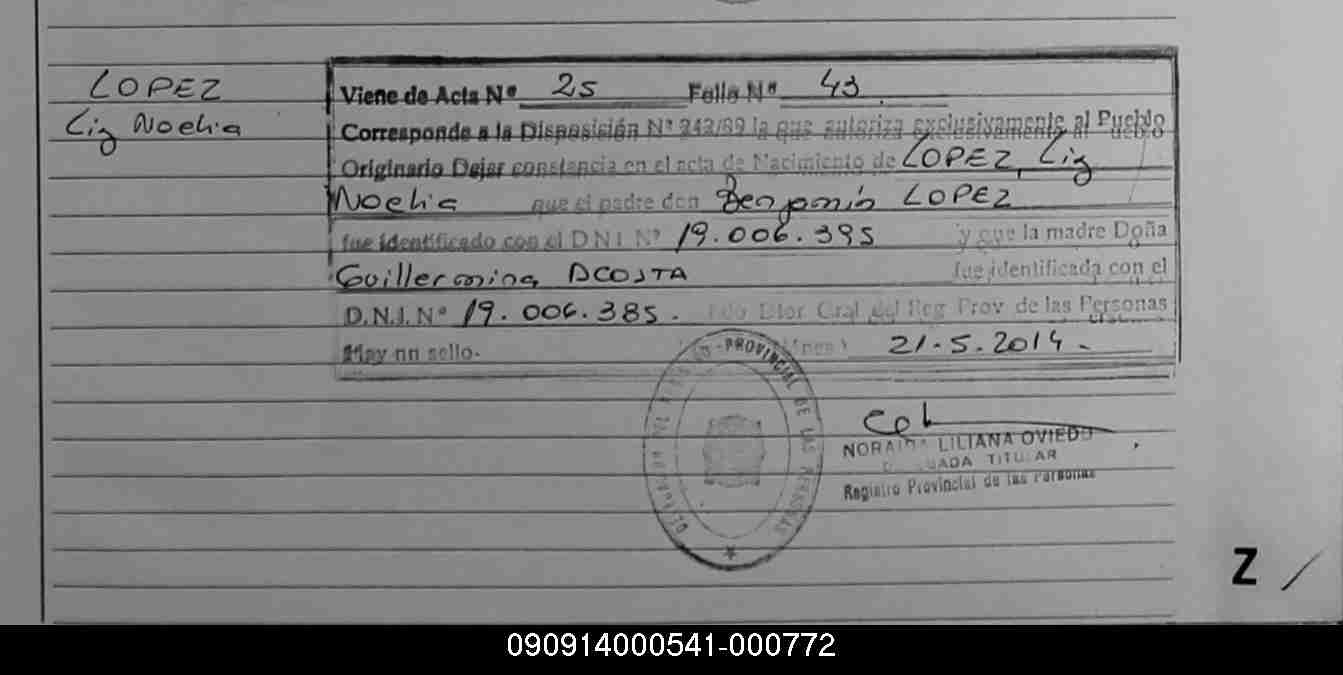 LOPEZ
Liz Noelia
Viene de Acta Nº 25 Folio Nº 43
Corresponde a la Disposición Nº 242/89 la que autoriza exclusivamente al Pueblo
Originario Dejar constancia en el acta de Nacimiento de LOPEZ, Liz
Noelia que el padre don Benjamín LOPEZ
fue identificado con el D N I. Nº 19.006.395 y que la madre Doña
Guillermina DCOSTA fue identificada con el
D.N.I. Nº 19.006.385. Fdo Dtor Gral del Reg Prov de las Personas
Hay un sello. 21.5.2014.
PROVINCIAL DE LAS PERSONAS
NORAIDA LILIANA OVIEDO
DELEGADA TITULAR
Registro Provincial de las Personas
Z /
090914000541-000772